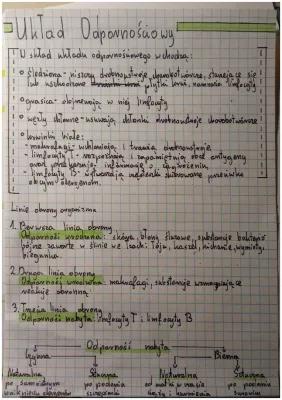 Układ Odpornościowy
W skład układu odpornościowego wchodzą:
śledziona - niszczy drobnoustroje chorobotwórcze, starzejące się
lub uszkodzone krwinki, namnaża limfocyty
grasica - dojrzewają w niej limfocyty
węzły chłonne - usuwają drobnoustroje chorobotwórcze
krwinki białe:
- makrofagi - wchłaniają i trawią drobnoustroje
- limfocyty T - rozpoznają i zapamiętują obce antygeny
oraz przekazują informacje o zagrożeniu
- limfocyty B - wytwarzają przeciwciała skierowane przeciwko
obcym antygenom.
Linie obrony organizmu
1. Pierwsza linia obrony
Odporność wrodzona: skóra, błony śluzowe, substancje bakterio
bójne zawarte w ślinie we łzach. Łój, kaszel, kichanie, wymioty,
biegunka.
2. Druga linia obrony
Odporność wrodzona: makrofagi, substancje wzmagające
reakcję obronną
3. Trzecia linia obrony
Odporność nabyta: limfocyty T i limfocyty B
Odporność nabyta
Czynna Bierna
Naturalna Sztuczna Naturalna Sztuczna
po samoistnym po podaniu od matki po podaniu
szczepionki surowicy